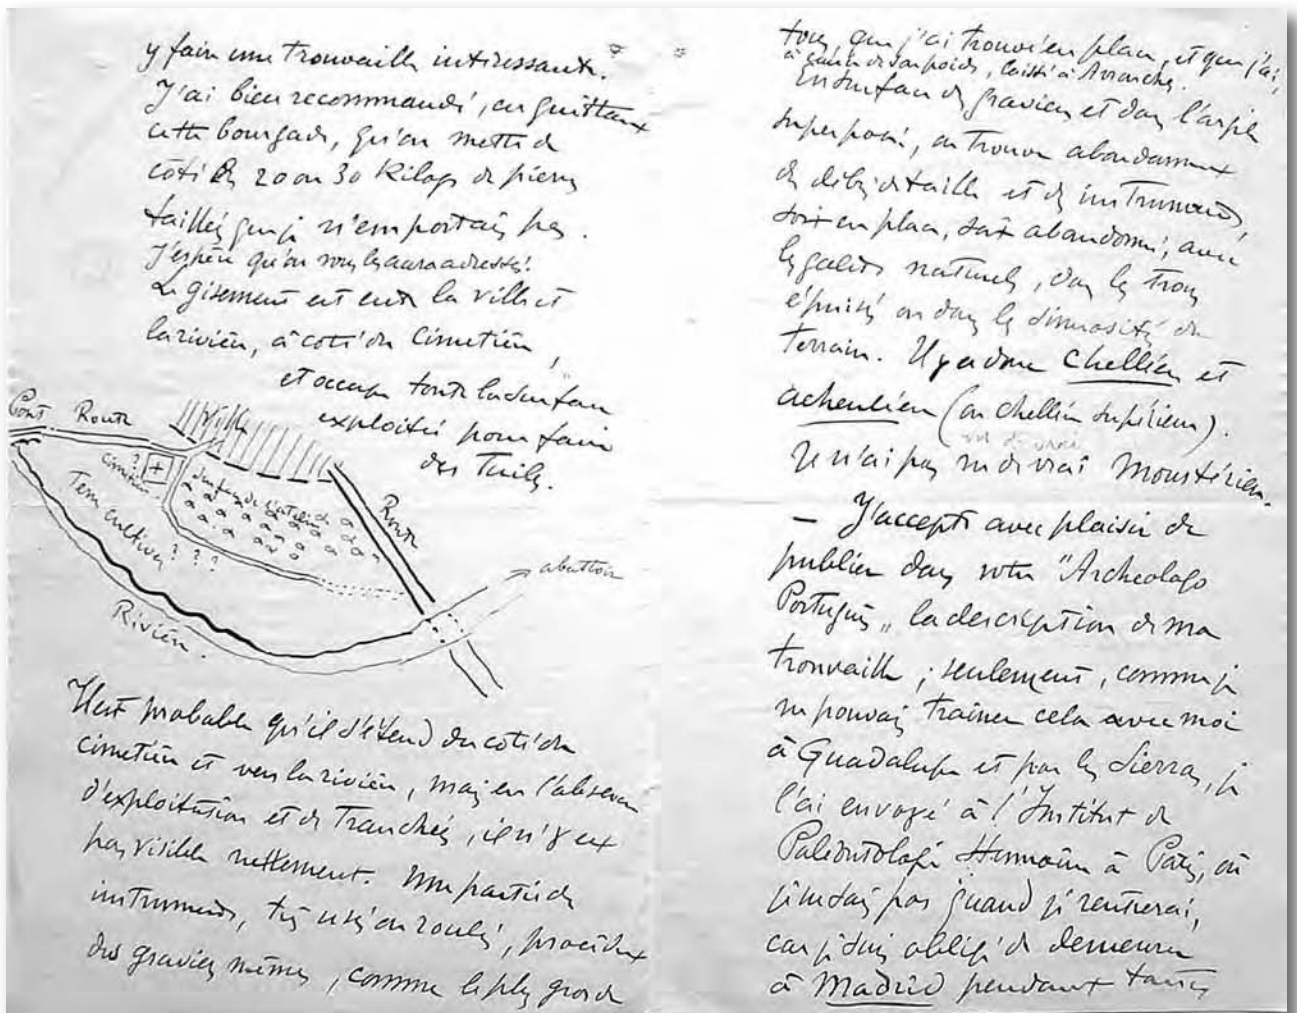 y faire une trouvaille intéressante.
J'ai bien recommandé, en quittant
cette bourgade, qu'on mette de
côté les 20 ou 30 Kilogs de pierres
taillées que je n'emportais pas.
J'espère qu'on vous les aura adressés.
Le gisement est entre la ville et
la rivière, à côté du Cimetière,
et occupe toute la surface
exploitée pour faire
des Tuiles.
Pont Route Ville
? cimetière
surface de l'atelier
Route
Terres cultivées ? ? ?
abattoir
Rivière.
Il est probable qu'il s'étend du côté du
cimetière et vers la rivière, mais en l'absence
d'exploitation et de Tranchées, il n'y est
pas visible nettement. Une partie des
instruments, très usés ou roulés, procèdent
des graviers mêmes, comme le plus gros de
tous, que j'ai trouvé en place, et que j'ai,
à cause de son poids, laissé à Arronches.
En surface des graviers et dans l'argile
superposée, on trouve abondamment
des débris de taille et des instruments,
soit en place, soit abandonnés, avec
les galets naturels, dans les trous
épuisés ou dans les sinuosités du
terrain. Il y a donc Chelléen et
acheuléen (ou chelléen supérieur).
vu de vrai
Je n'ai pas vu de vrai Moustérien.
— J'accepte avec plaisir de
publier dans votre "Archeologo
Portugués" la description de ma
trouvaille ; seulement, comme je
ne pouvais traîner cela avec moi
à Guadalupe et par les Sierras, je
l'ai envoyé à l'Institut de
Paléontologie Humaine à Paris, où
je ne sais pas quand je rentrerai,
car je suis obligé de demeurer
à Madrid pendant